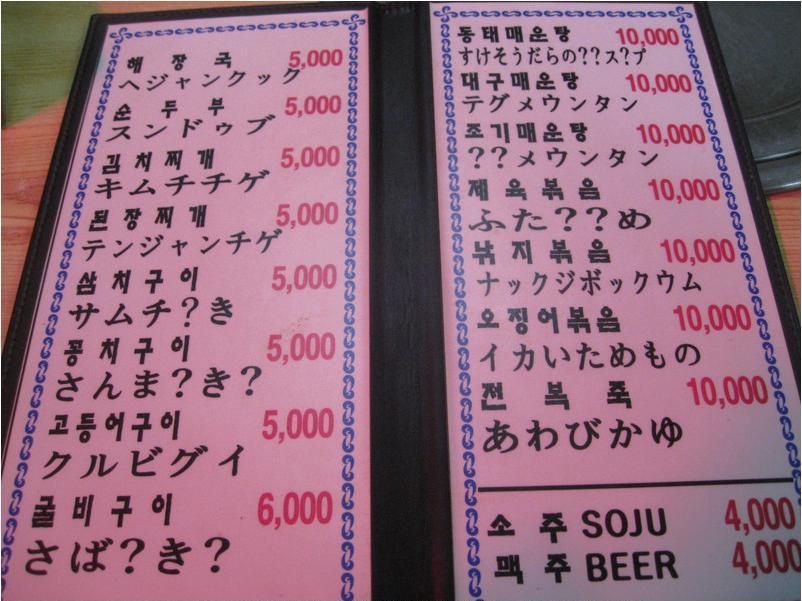 해장국 5,000
ヘジャンクック
순두부 5,000
スンドゥブ
김치찌개 5,000
キムチチゲ
된장찌개 5,000
テンジャンチゲ
삼치구이 5,000
サムチ?き
꽁치구이 5,000
さんま?き?
고등어구이 5,000
クルビグイ
굴비구이 6,000
さば?き?
동태매운탕 10,000
すけそうだらの??ス?プ
대구매운탕 10,000
テグメウンタン
조기매운탕 10,000
??メウンタン
제육볶음 10,000
ふた??め
낚지볶음 10,000
ナックジボックウム
오징어볶음 10,000
イカいためもの
전복죽 10,000
あわびかゆ
소주 SOJU 4,000
맥주 BEER 4,000